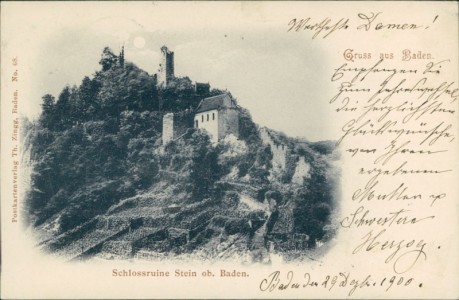 Wertheste Damen!
Gruss aus Baden.
Empfangen Sie
zum Jahreswechsel
die herzlichsten
Glückwünsche,
von Ihren
ergebenen
Mutter u
Schwestern
Herzog.
Baden den 29 Dezb. 1900.
Schlossruine Stein ob. Baden.
Postkartenverlag Th. Zingg, Baden. No. 68.